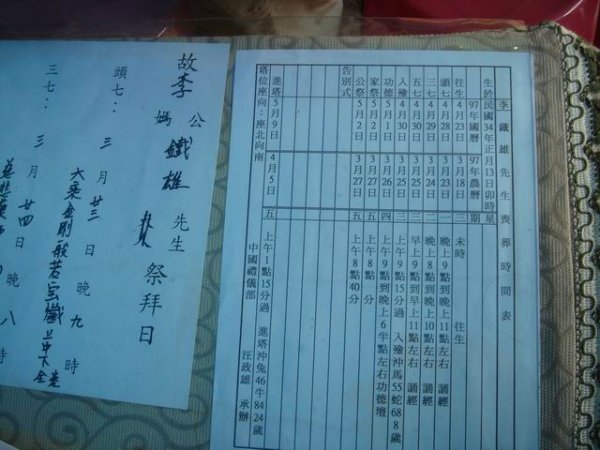 李鐵雄先生喪葬時間表
生於民國34年正月13日卯時
97年國曆 97年農曆 星期
往生 4月23日 3月18日 三 未時 往生
頭七 4月28日 3月23日 一 晚上9點到晚上11點左右 誦經
三七 4月29日 3月24日 二 晚上8點到晚上10點左右 誦經
五七 4月30日 3月25日 三 早上9點到早上11點左右 誦經
入殮 4月30日 3月25日 三 上午9點15分過 入殮沖馬55蛇68 8歲
功德 5月1日 3月26日 四 上午9點到晚上6半點左右功德壇
家祭 5月2日 3月27日 五 上午8點 分
公祭 5月2日 3月27日 五 上午8點40分
告別式
進塔 5月9日 4月5日 五 上午1點15分過 進塔沖兔46牛84 24歲
塔位座向：座北向南
中國禮儀部 汪政雄 承辦
故李公媽鐵雄先生
祭拜日
頭七：三月廿三日晚九時
大乘金剛般若宝懺上中下全卷
三七：三月廿四日晚八時
慈悲